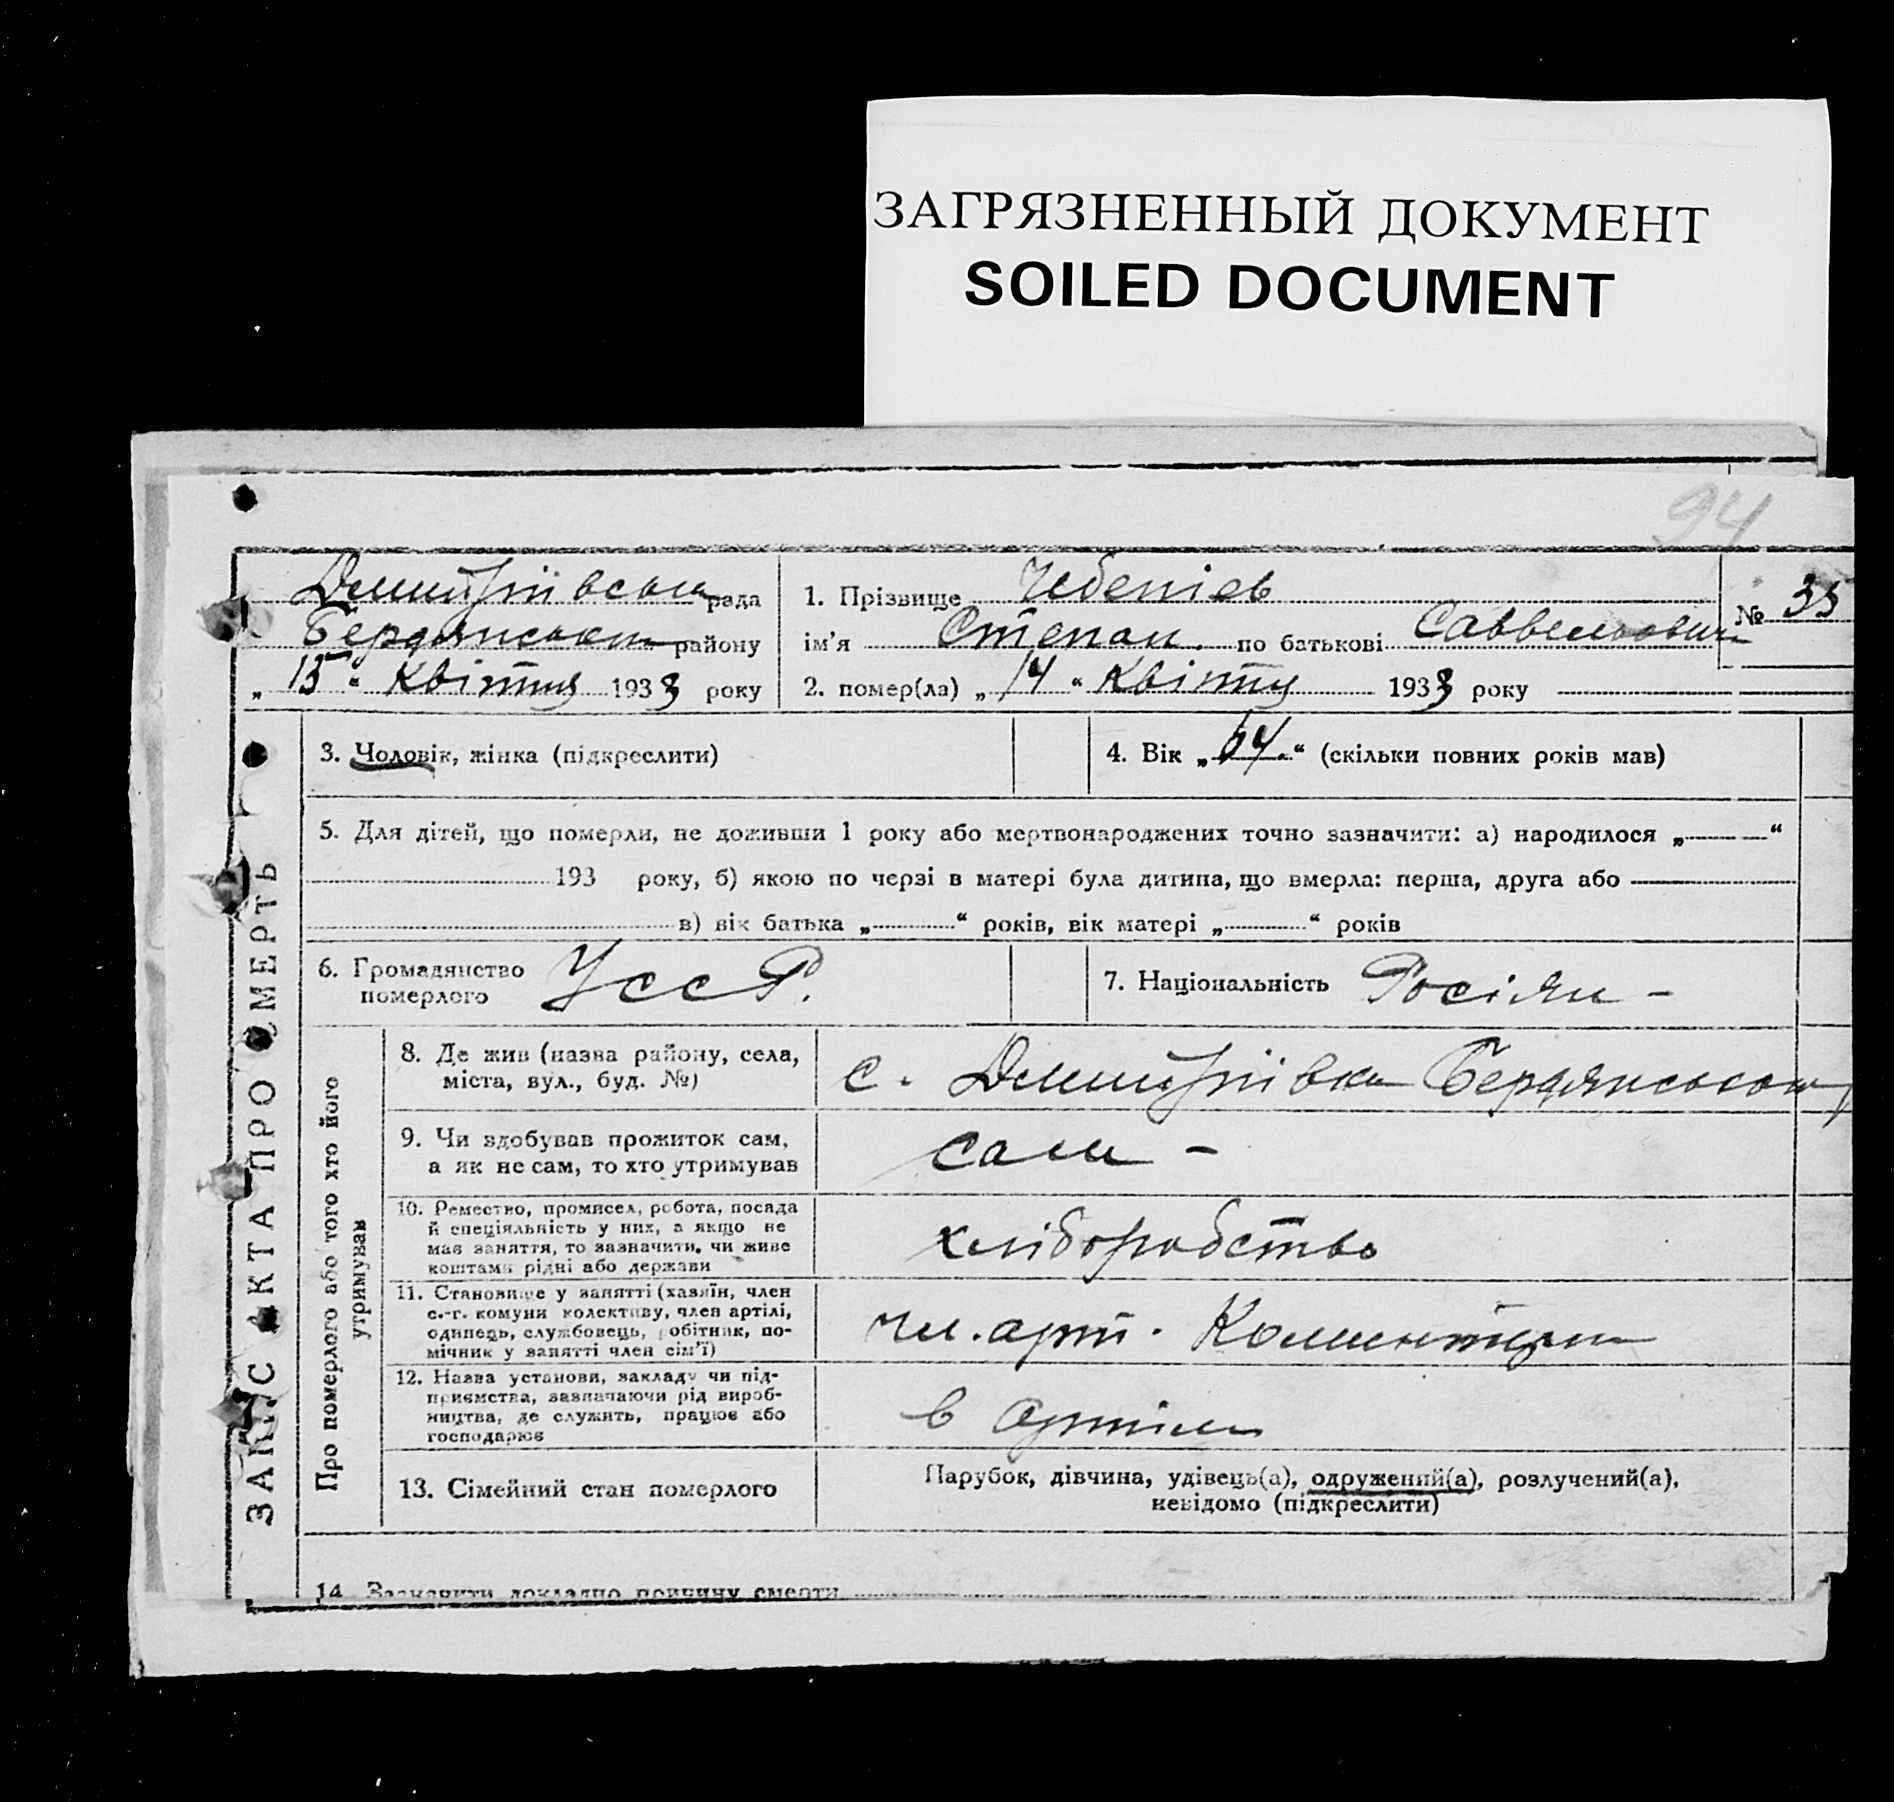 ЗАГРЯЗНЕННЫЙ ДОКУМЕНТ
SOILED DOCUMENT
94
ЗАПИС АКТА ПРО СМЕРТЬ
Дмитріївська рада
Бердянського району
„ 15 “ Квітня 1933 року
1. Прізвище
№ 35
ім’я Степан по батькові Саввельович
2. помер(ла) „ 14 “ Квітня 1933 року
3. Чоловік, жінка (підкреслити)
4. Вік „ 64 “ (скільки повних років мав)
5. Для дітей, що померли, не доживши 1 року або мертвонароджених точно зазначити: а) народилося „ — “
193 року, б) якою по черзі в матері була дитина, що вмерла: перша, друга або
в) вік батька „ “ років, вік матері „ “ років
6. Громадянство
померлого УССР.
7. Національність Росіян –
Про померлого або того хто його
утримував
8. Де жив (назва району, села,
міста, вул., буд. №)
с. Дмитріївка Бердянського
9. Чи здобував прожиток сам,
а як не сам, то хто утримував
сам –
10. Ремество, промисел, робота, посада
й спеціяльність у них, а якщо не
має заняття, то зазначити, чи живе
коштами рідні або держави
хліборобство
11. Становище у занятті (хазяїн, член
с.-г. комуни колективу, член артілі,
одинець, службовець, робітник, по-
мічник у занятті член сім’ї)
чл. арт. Комінтерн
12. Назва установи, закладу чи під-
приємства, зазначаючи рід вироб-
ництва, де служить, працює або
господарює
в Артіли
13. Сімейний стан померлого
Парубок, дівчина, удівець(а), одружений(а), розлучений(а),
невідомо (підкреслити)
14. Зазначити докладно причину смерти